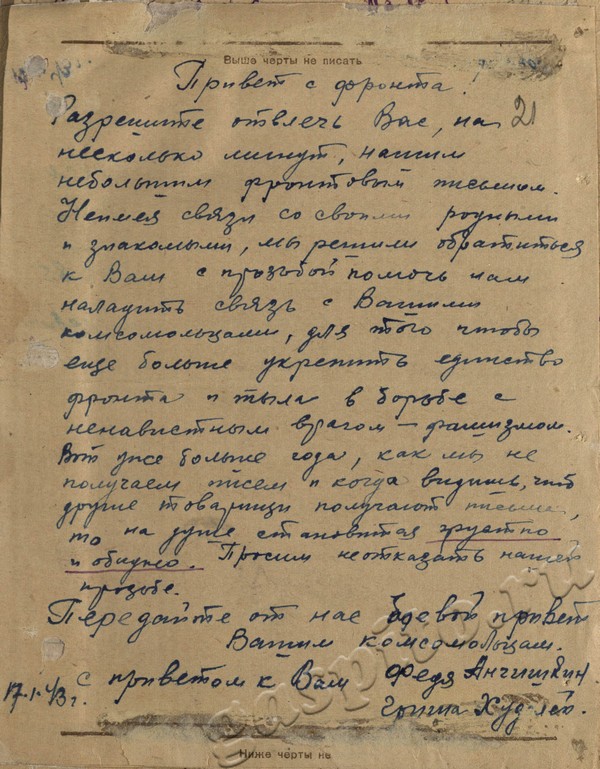 Выше черты не писать
Привет с фронта!
Разрешите отвлечь Вас, на 21
несколько минут, нашим
небольшим фронтовым письмом.
Неимея связи со своими родными
и знакомыми, мы решили обратиться
к Вам с прозьбой помочь нам
наладить связь с Вашими
комсомольцами, для того чтобы
еще больше укрепить единство
фронта и тыла в борьбе с
ненавистным врагом – фашизмом.
Вот уже больше года, как мы не
получаем писем и когда видишь, что
другие товарищи получают письма,
то на душе становится грустно
и обидно. Просим неотказать нашей
прозьбе.
Передайте от нас боевой привет
Вашим комсомольцам.
с приветом к Вам Федя Анчишкин
17.1.43г. Гриша
Ниже черты не
gaspiko.ru